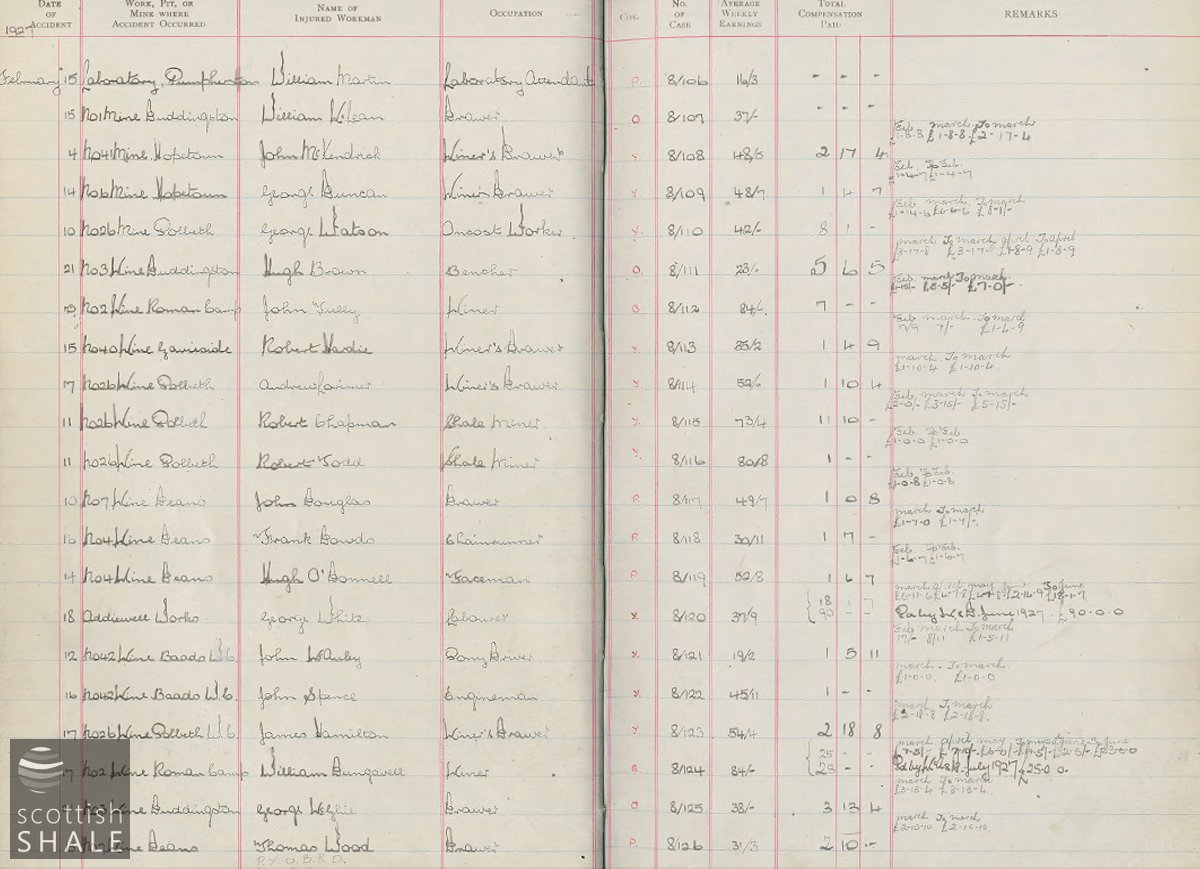 DATE OF ACCIDENT WORK, PIT, OR MINE WHERE ACCIDENT OCCURRED NAME OF INJURED WORKMAN OCCUPATION Coy. No. OF CASE AVERAGE WEEKLY EARNINGS TOTAL COMPENSATION PAID REMARKS
1927
February 15 Laboratory, Pumpherston William Martin Laboratory Attendant P. 8/106 16/3 - - -
15 No1 Mine Duddingston William McLean Drawer O. 8/107 37/- - - -
Feb march To march
£1-8-8 £1-8-8 £2-17-4
4 No41 Mine Hopetoun John McKendrick Miner's Drawer Y. 8/108 48/5 2 17 4
Feb To Feb.
£1-4-7 £1-4-7
14 No6 Mine Hopetoun George Duncan Miner's Drawer Y. 8/109 48/7 1 4 7
Feb march. To march
£1-14-6 £6-6-6 £8-1/-
10 No26 Mine Dolbeth George Watson Oncost Worker Y. 8/110 42/- 8 1 -
march To march april To april
£3-17-8 £3-17- £1-8-9 £1-8-9
21 No3 Mine Duddingston Hugh Brown Bencher O. 8/111 23/- 5 6 5
Feb. march To march.
£5-5/- £7-0/-
No2 Mine Roman Camp John Tully Miner B. 8/112 84/- 7 - -
Feb march To march
17/9 7/- £1-4-9
15 No40 Mine Gavieside Robert Hardie Miner's Drawer Y. 8/113 35/2 1 4 9
march To march
£1-10-4 £1-10-4
17 No26 Mine Dolbeth Andrew Lorimer Miner's Drawer Y. 8/114 52/6 1 10 4
Feb march To march
£2-0/- £3-15/- £5-15/-
11 No26 Mine Dolbeth Robert Chapman Shale Miner Y. 8/115 73/4 11 10 -
Feb. To Feb.
£1-0-0 £1-0-0
11 No26 Mine Dolbeth Robert Todd Shale Miner Y. 8/116 80/8 1 - -
Feb To Feb.
£1-0-8 £1-0-8
10 No7 Mine Deans John Douglas Drawer P. 8/117 49/7 1 0 8
march To march
£1-7-0 £1-7/-
16 No4 Mine Deans Frank Dowds Chainrunner P. 8/118 30/11 1 7 -
Feb. To Feb.
£1-6-7 £1-6-7
14 No4 Mine Deans Hugh O'Donnell Faceman P. 8/119 52/8 1 6 7
march april may June To June
£6-11-6 £4-7-8 £4-7-8 £2-14-9 £18-1-7
18 Addiewell Works George White Labourer Y. 8/120 37/9 18 1 7
90 - - June 1927 £90-0-0
Feb march To march
17/- 8/11 £1-5-11
12 No42 Mine Baads W.C. John McAuley Pony Driver Y. 8/121 19/2 1 5 11
march - To march.
£1-0-0. £1-0-0
16 No42 Mine Baads W.C. John Spence Engineman Y. 8/122 45/11 1 - -
march To march
£2-18-8 £2-18-8.
17 No26 Mine Dolbeth W.C. James Hamilton Miner's Drawer Y. 8/123 54/4 2 18 8
march april may
No2 Mine Roman Camp William Dungavell Miner B. 8/124 84/6 25 - -
25 - - July 1927 £25 0 0.
march To march
£3-13-4 £3-13-4.
Mine Duddingston George Drawer O 8/125 38/- 3 13 4
march To march
£2-10-10 £2-10-10.
Mine Deans Thomas Wood Drawer P. 8/126 31/3 2 10 -
scottish
SHALE